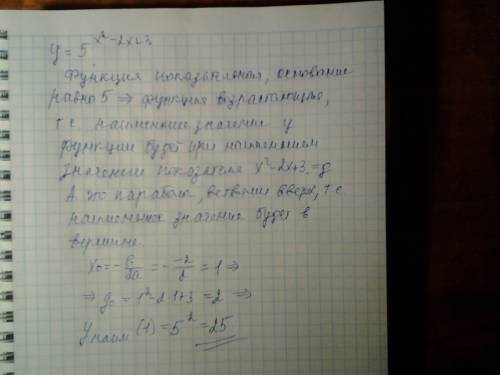 y = 5^(x²-2x+3)
Функция показательная, основание
равно 5 ⇒ функция возрастающая,
т.е. наименьшее значение y
функции будет при наименьшем
значении показателя x²-2x+3 = g
А это парабола, ветвями вверх, т.е
наименьшее значение будет в
вершине.
x₀ = -b/2a = - -2/2 = 1 ⇒
⇒ g₀ = 1²-2·1+3 = 2 ⇒
y наим (1) = 5² = 25